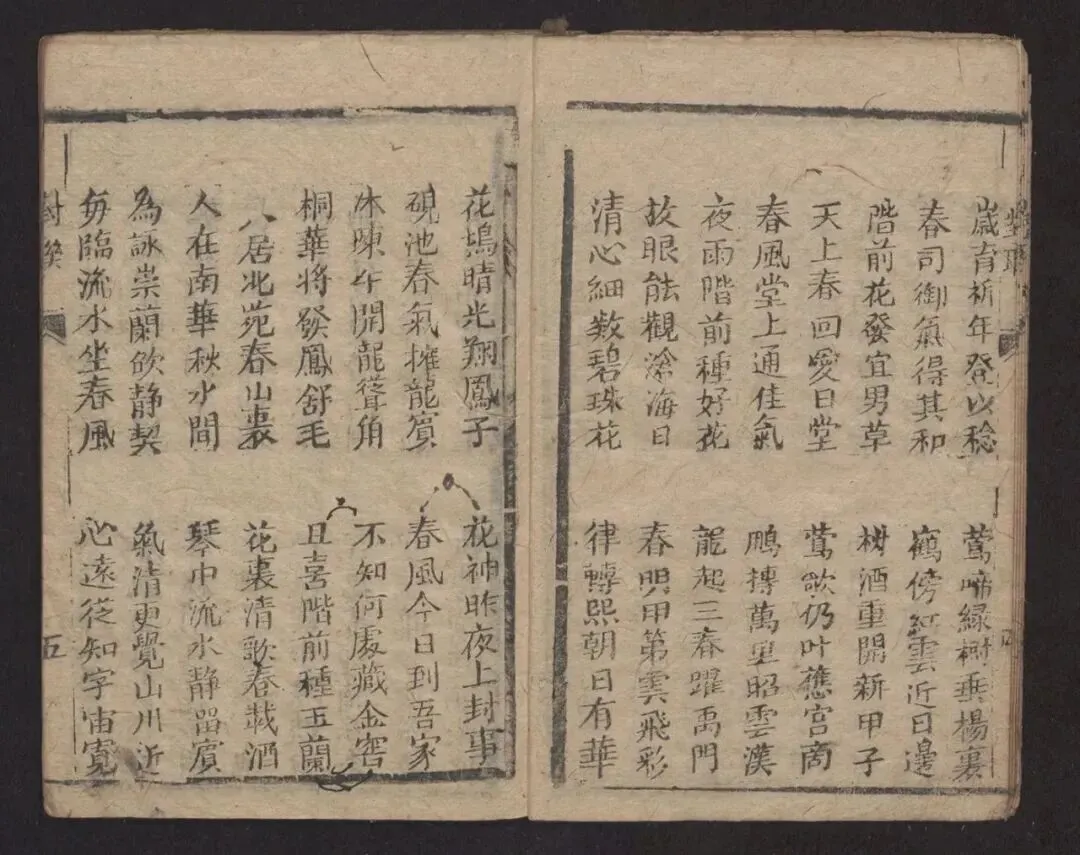 歲育祈年登以稔
春司御氣得其和
階前花發宜男草
天上春回愛日堂
春風堂上通佳氣
夜雨階前種好花
放眼能觀滄海日
清心細數碧珠花
鶯啼綠樹垂楊裏
鶴傍紅雲近日邊
樹酒重開新甲子
鶯歌仍叶應宮商
鵬摶萬里昭雲漢
龍起三春躍禹門
春明甲第雲飛彩
律轉熙朝日有華
花塢晴光翔鳳子
硯池春氣擁龍賓
休陳午開龍聳角
桐華將發鳳舒毛
人居北苑春山裏
人在南華秋水間
為詠崇蘭欲静契
每臨流水坐春風
花神昨夜上封事
春風今日到吾家
不知何處藏金窖
且喜階前種玉蘭
花裏清歌春載酒
琴中流水静留賓
氣清更覺山川近
心遠從知宇宙寬
五